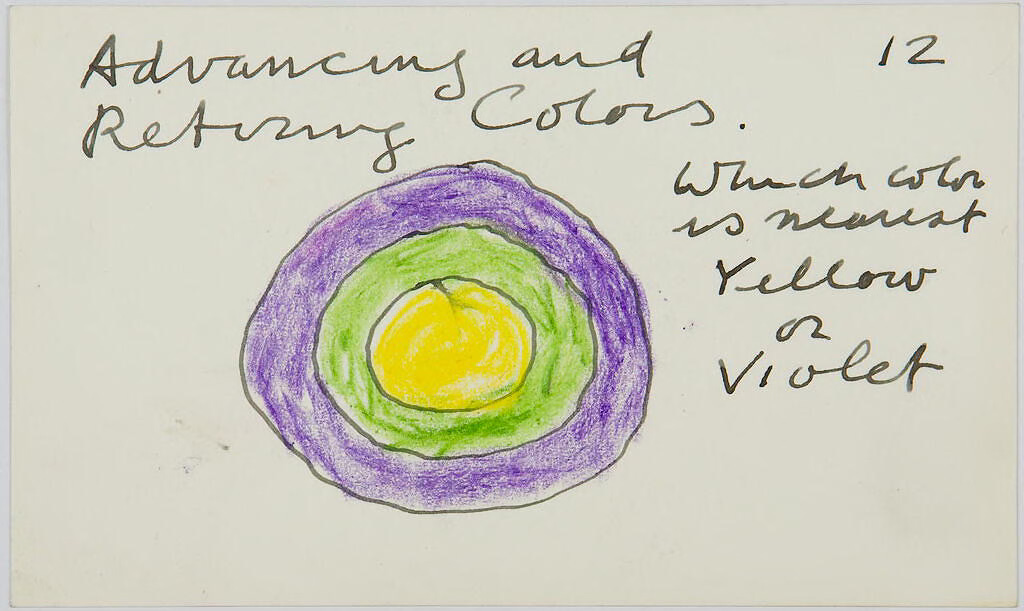 Advancing and
12
Retiring Colors.
Which color
is nearest
Yellow
or
Violet